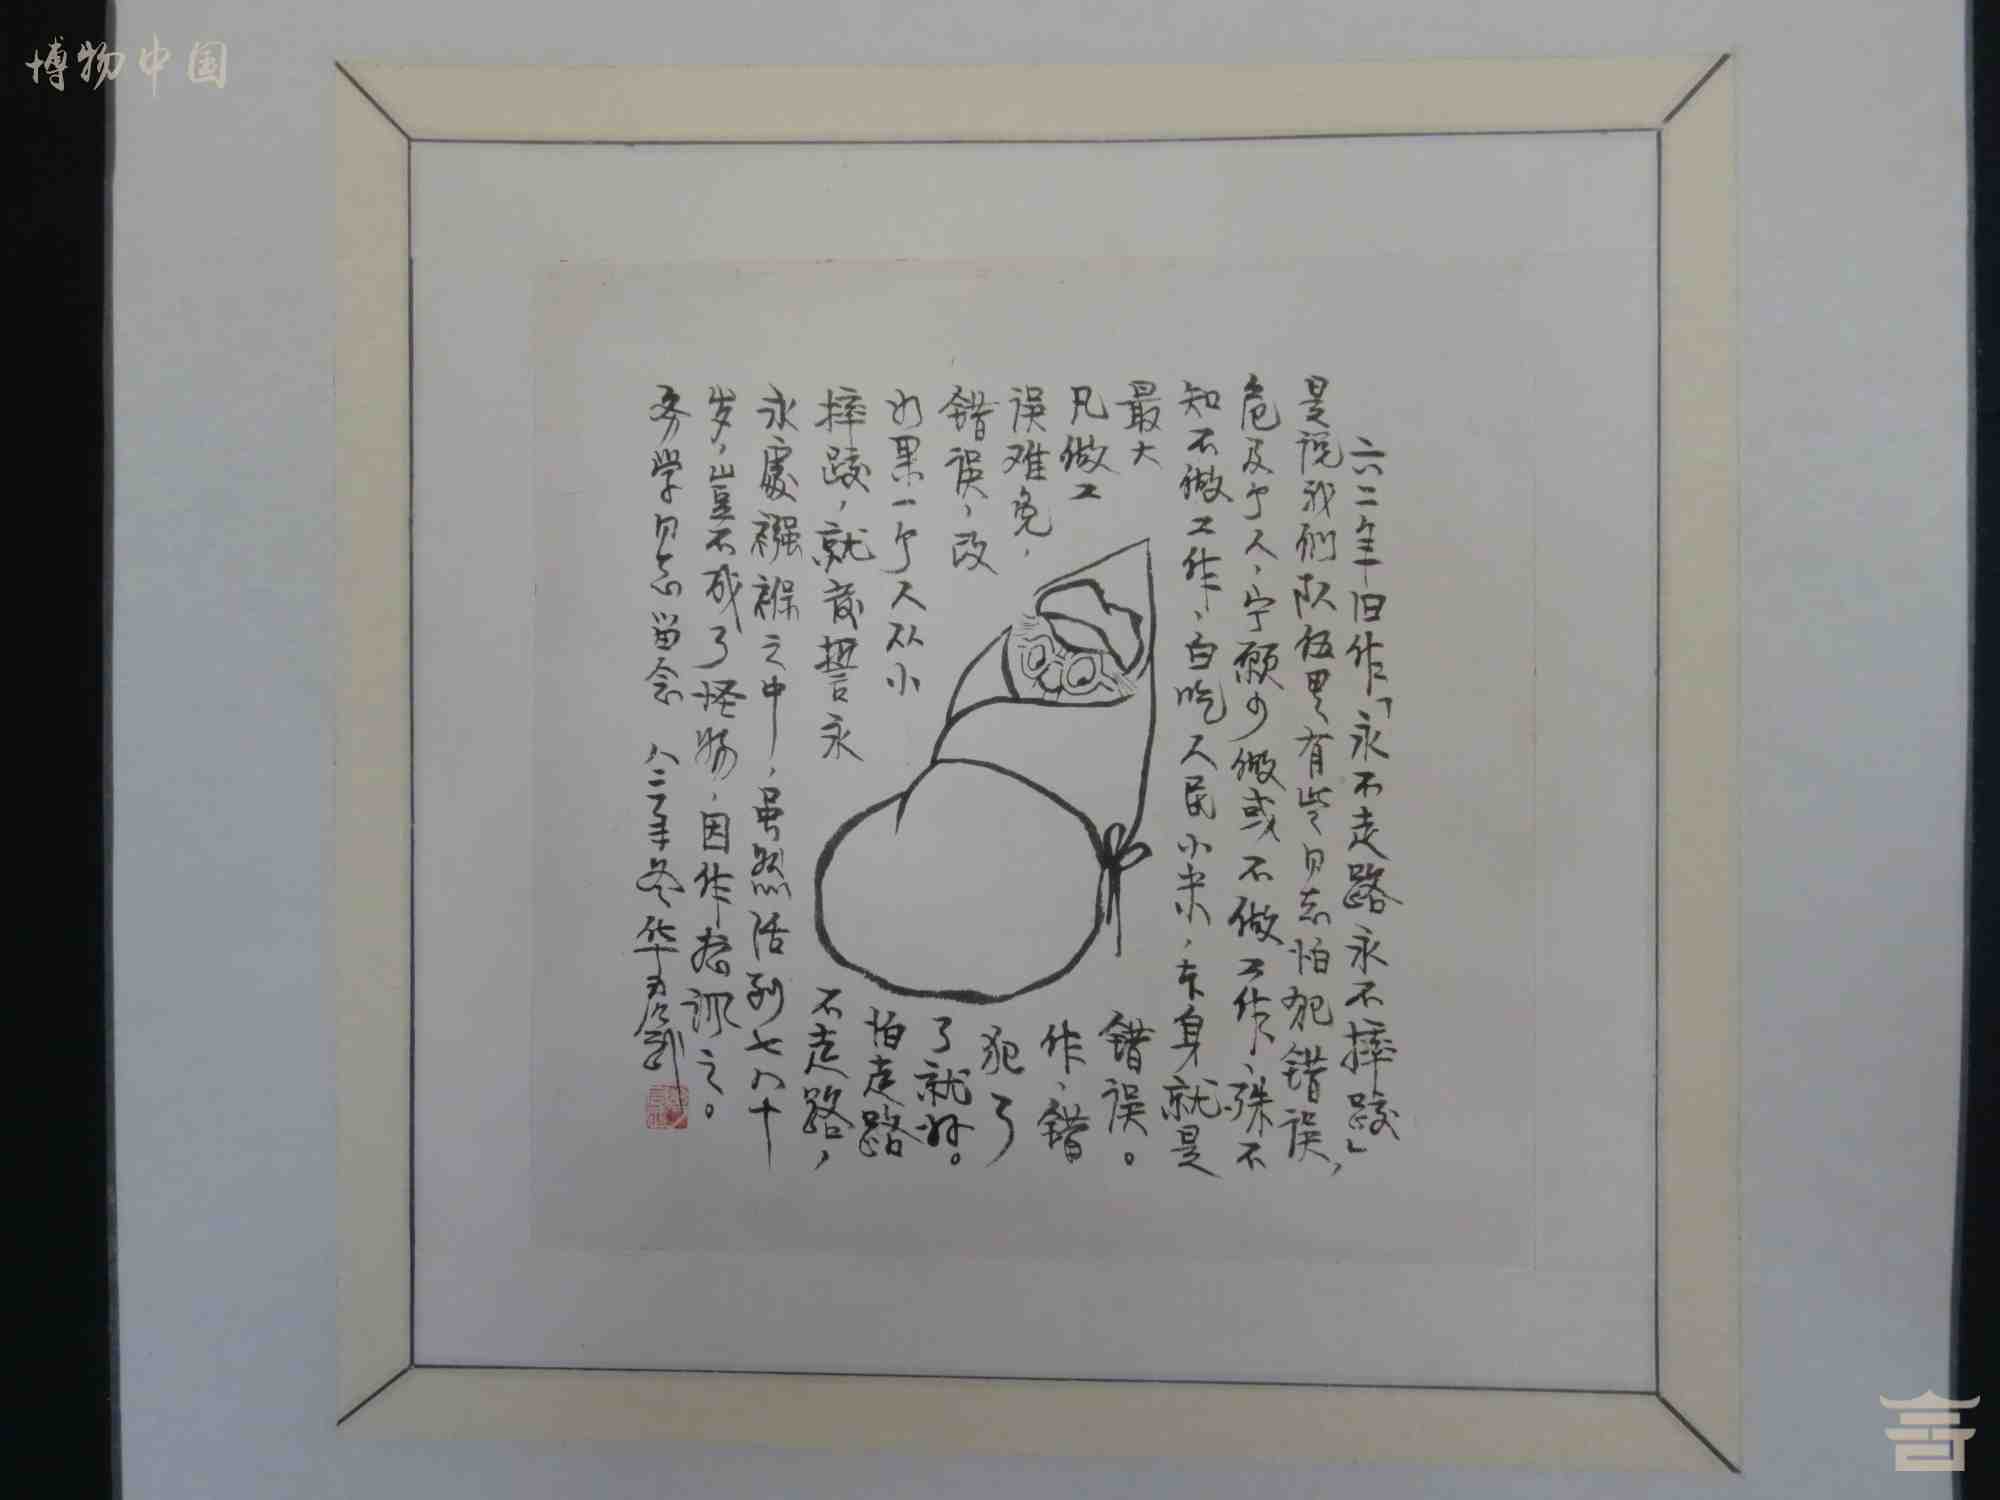 博物中国
六二年旧作「永不走路永不摔跤」
是说我们队伍里有些同志怕犯错误，
危及个人，宁愿少做或不做工作，殊不
知不做工作，白吃人民小米，本身就是
最大错误。
凡做工作，错
误难免，犯了
错误，改了就好。
如果一个人从小怕走路
摔跤，就发誓永不走路，
永处襁褓之中，虽然活到七八十
岁，豈不成了怪物，因作打油讽之。
学同志留念 八二年冬华君武